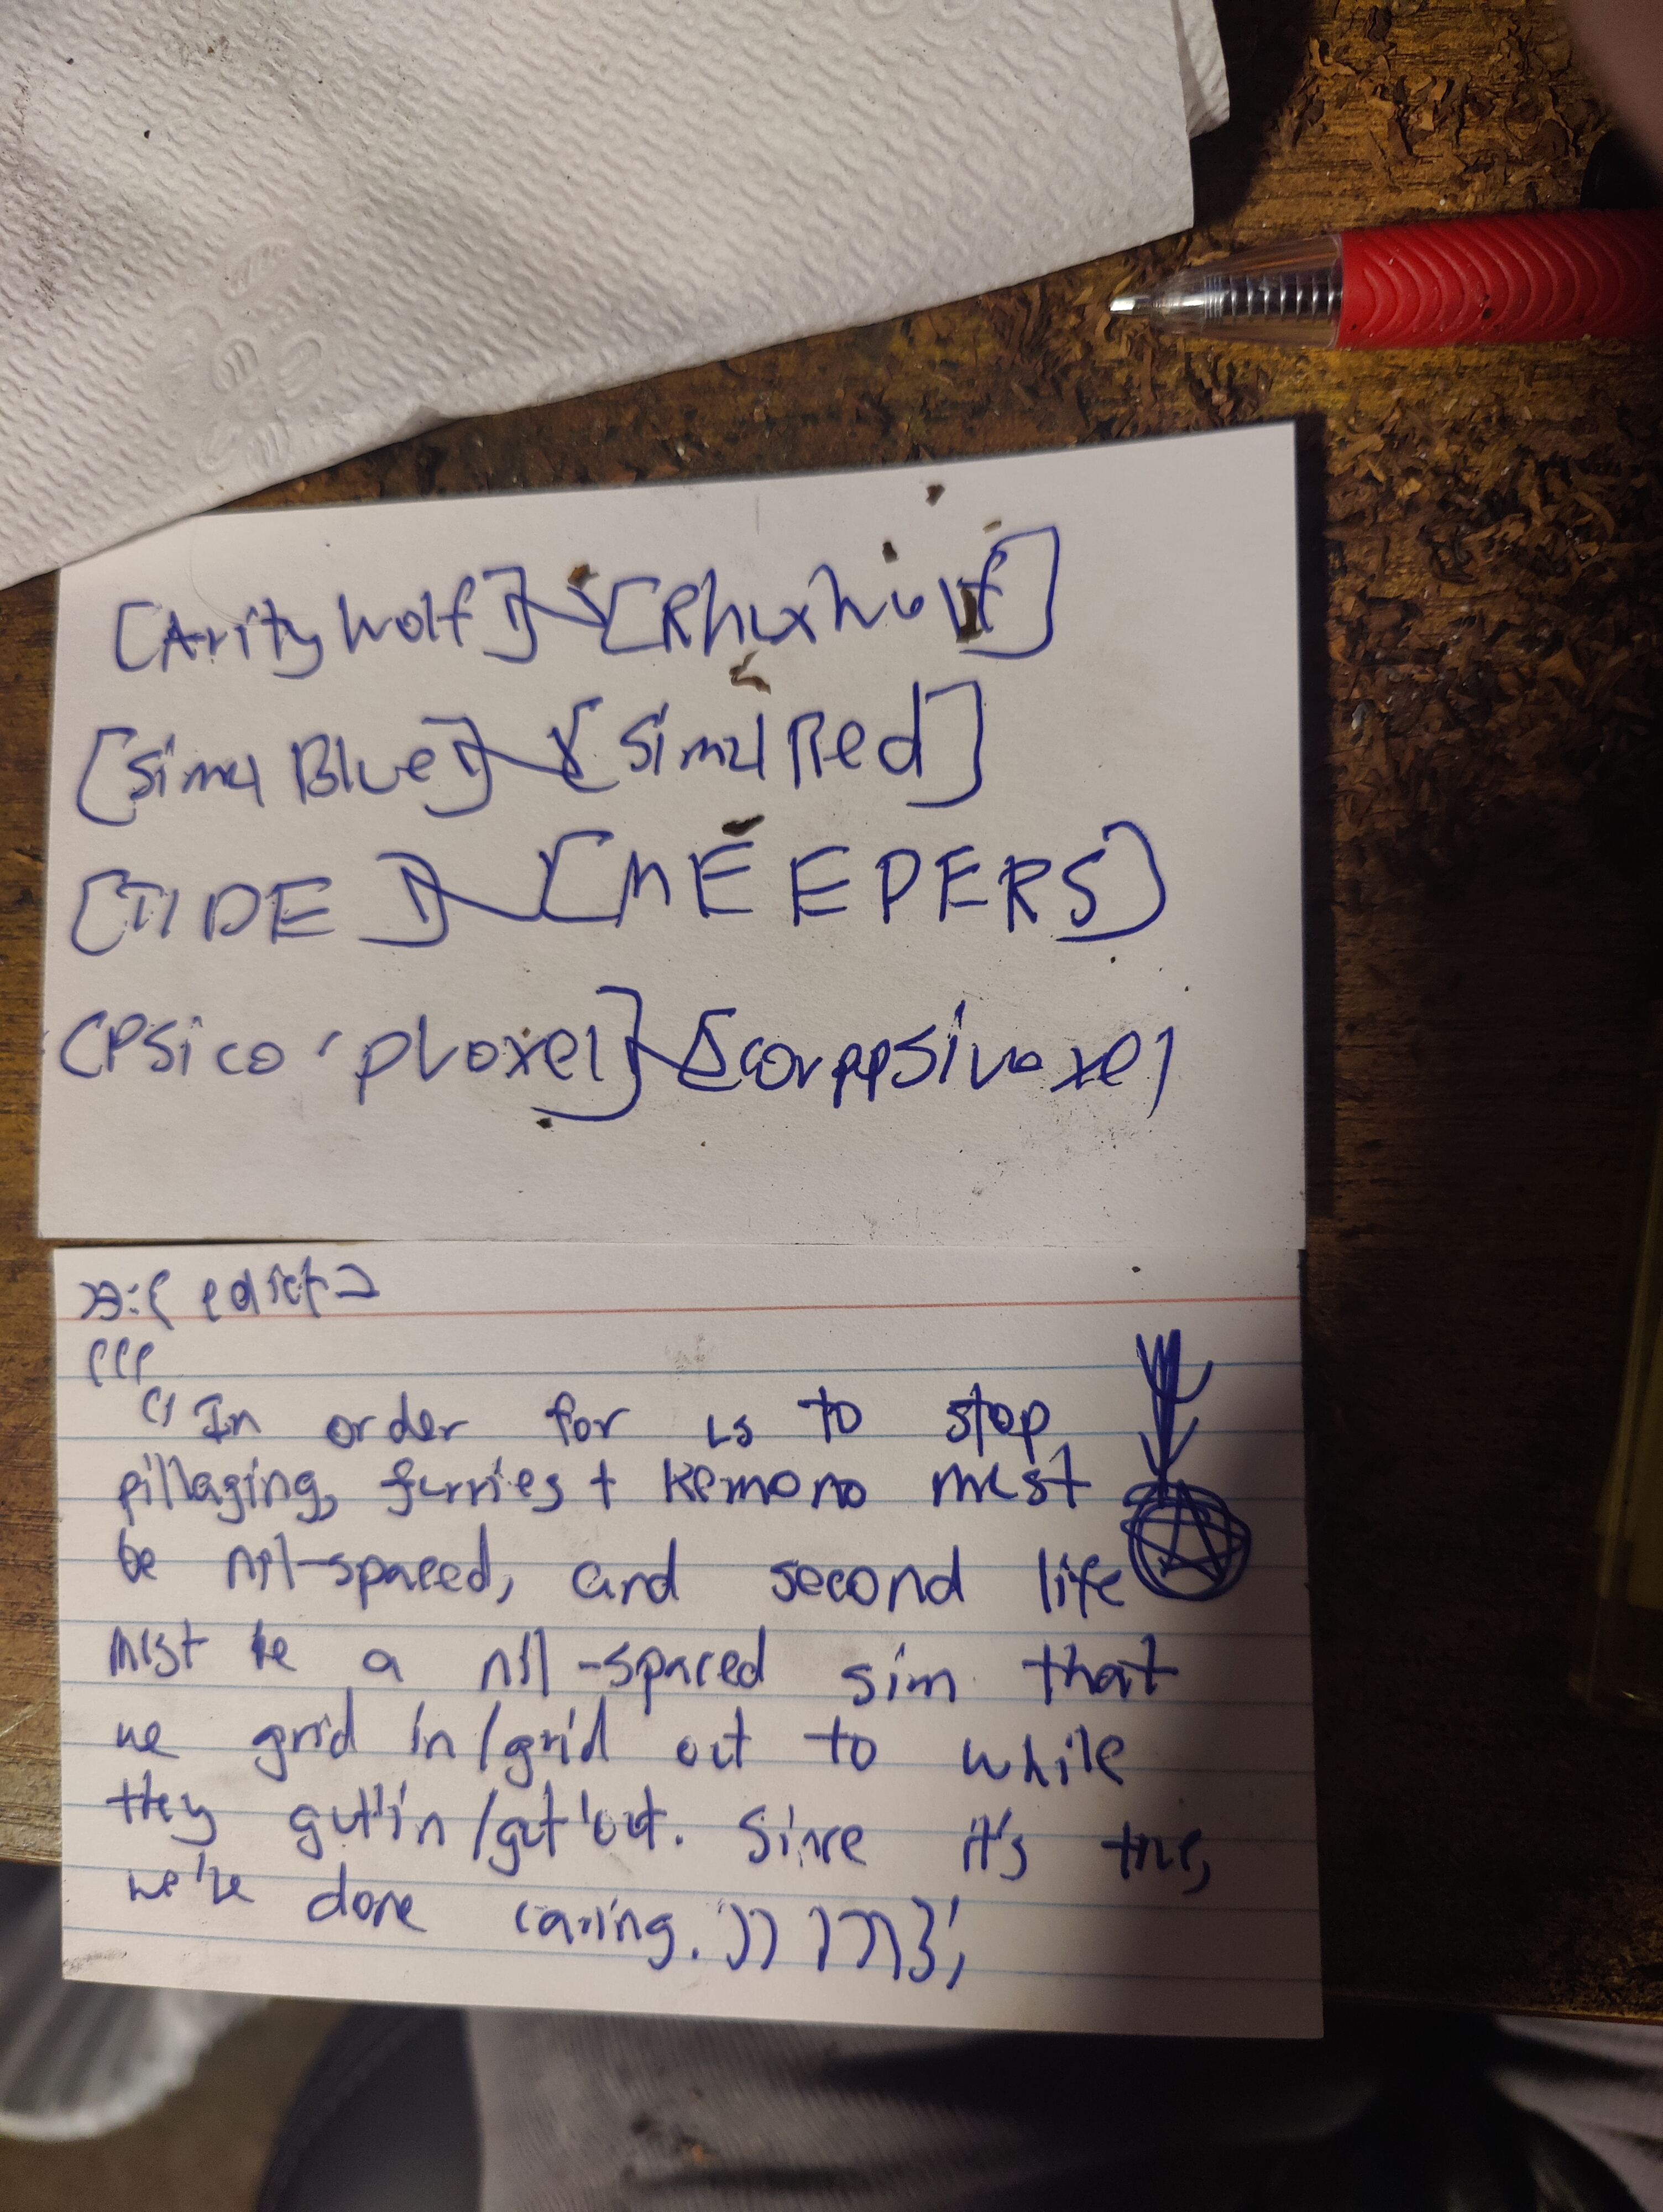 [Arity Wolf] [Rhux Wolf]
[Simul Blue] [Simul Red]
[TIDE] [MEEPERS]
[Psico'ploxel] [corppsivoxel
edict
(((
"In order for us to stop
pillaging, furries + Kemono must
be nil-spaced, and second life
must be a nil-spaced sim that
we grid in/grid out to while
they gut'in/gut'out. Since it's true,
we're done caring.")) )))};